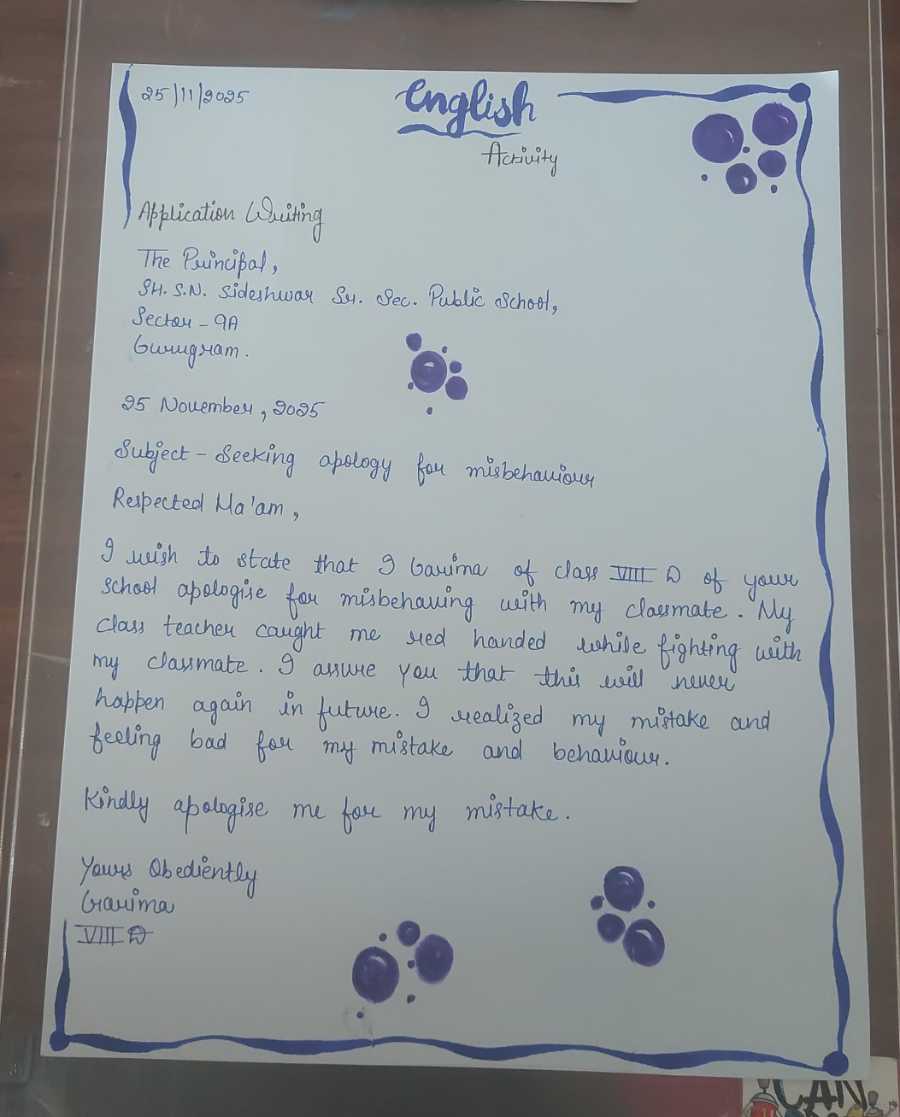 25/11/2025
English
Activity
Application Writing
The Principal,
SH. S.N. Sideshwar Sr. Sec. Public School,
Sector - 9A
Gurugram.
25 November, 2025
Subject - Seeking apology for misbehaviour
Respected Ma'am,
I wish to state that I Garima of class VIII D of your
school apologise for misbehaving with my classmate. My
class teacher caught me red handed while fighting with
my classmate. I assure you that this will never
happen again in future. I realized my mistake and
feeling bad for my mistake and behaviour.
Kindly apologise me for my mistake.
Yours Obediently
Garima
VIII D
CAN